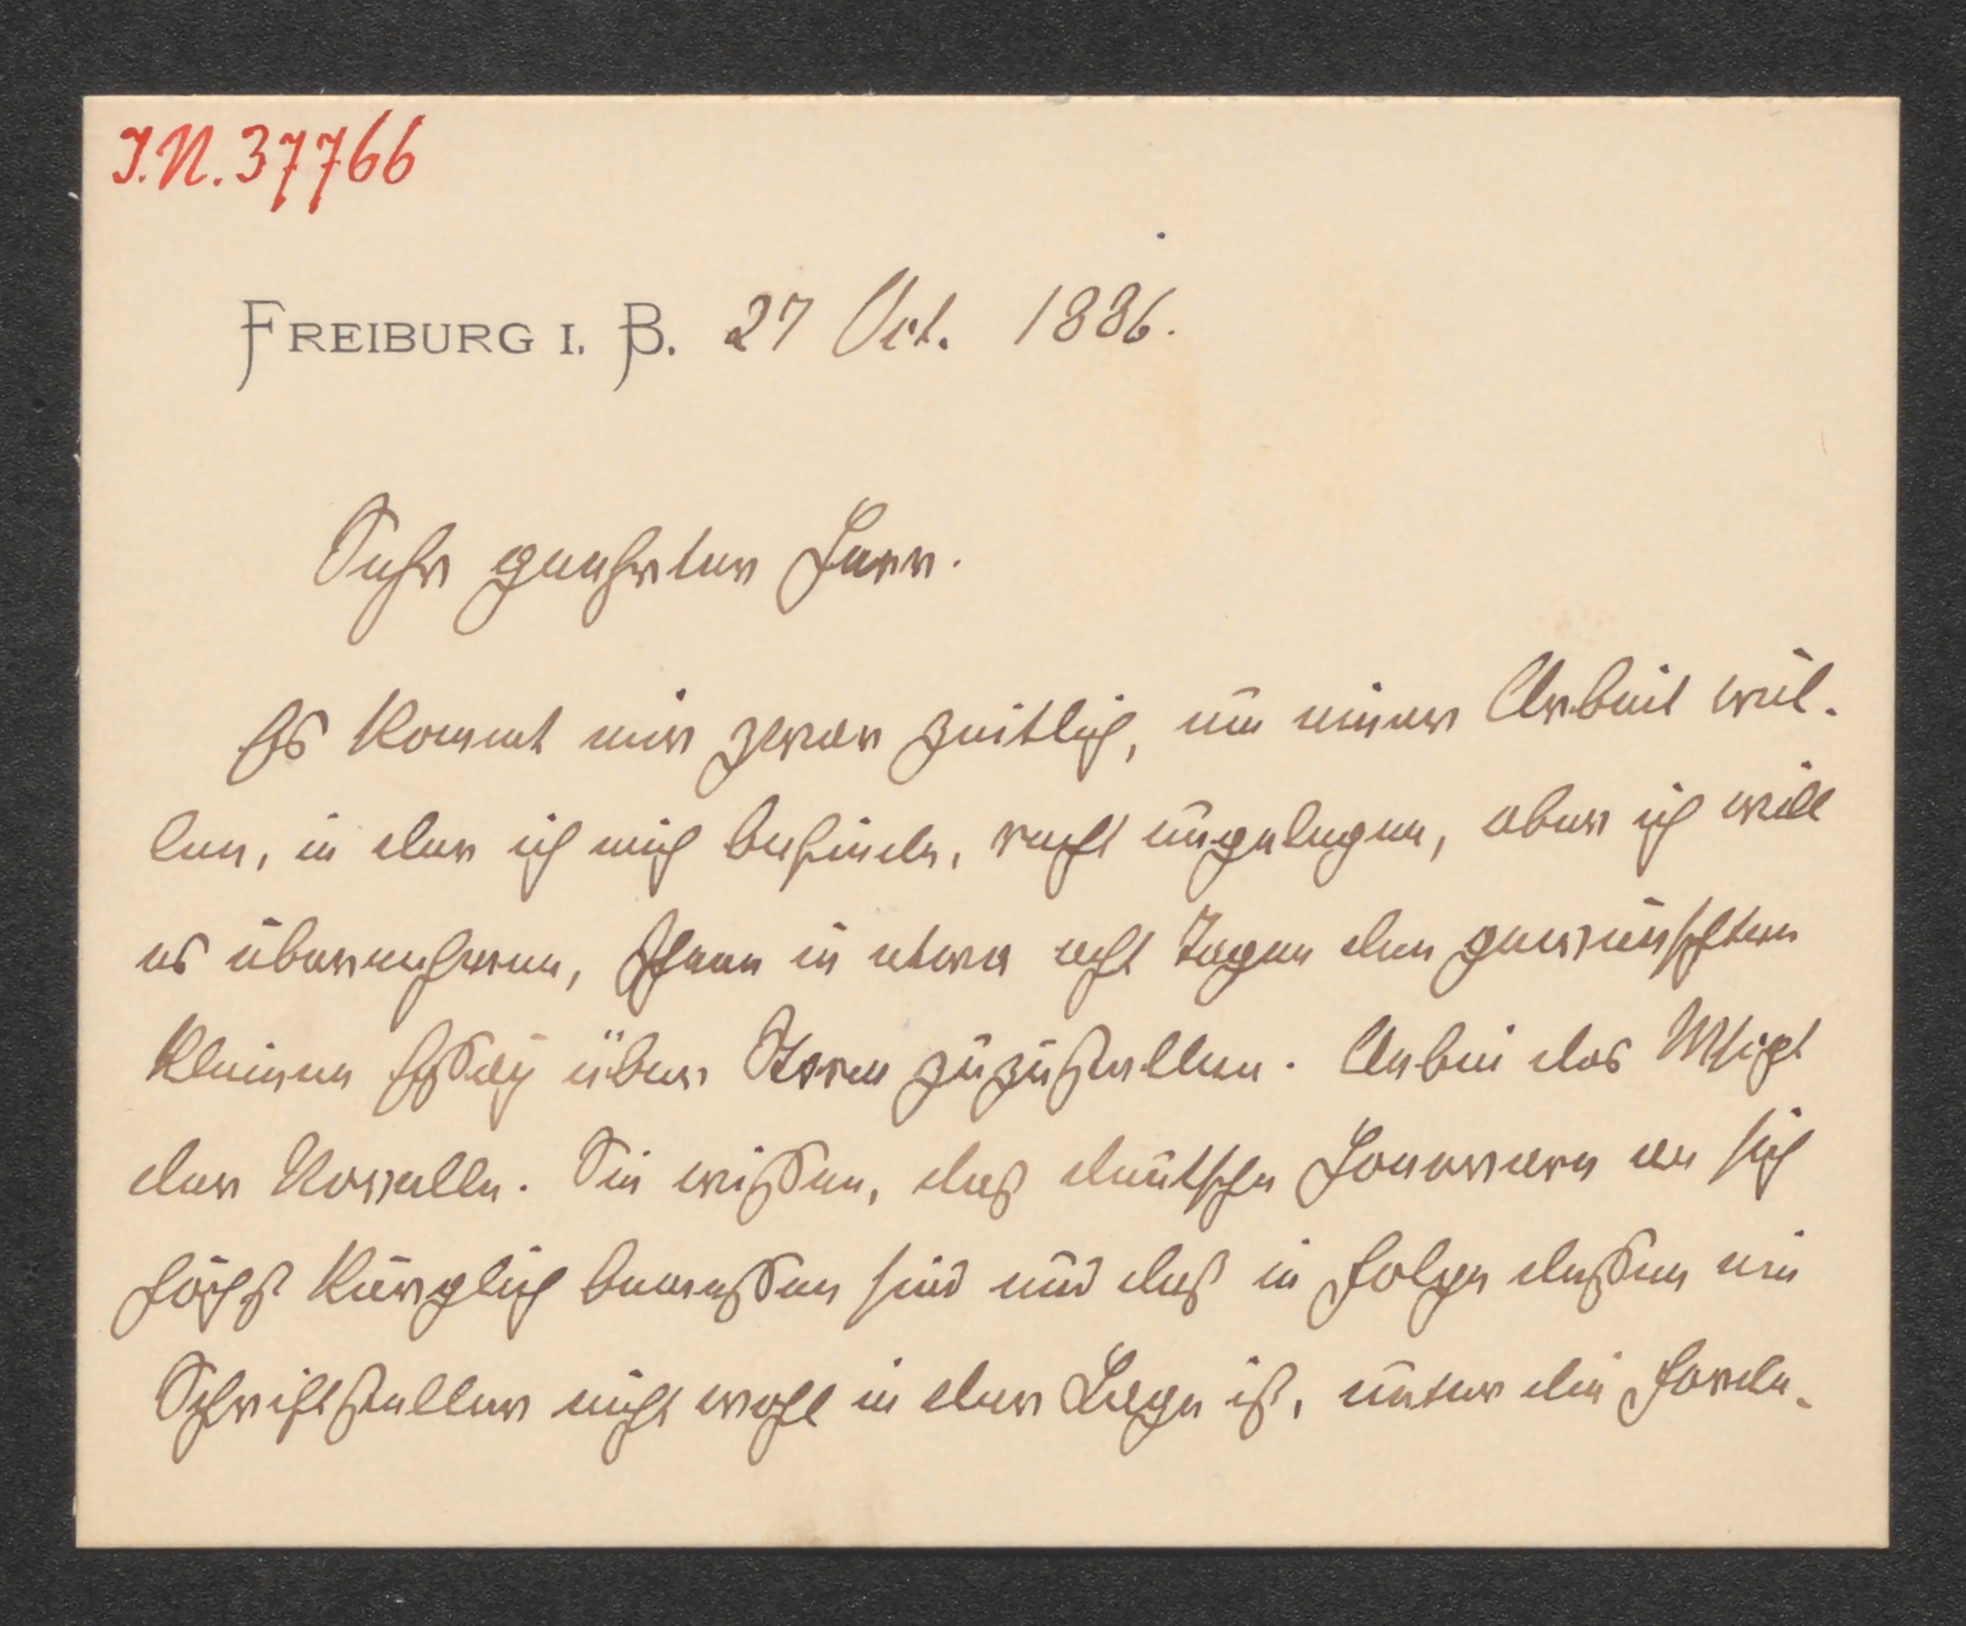 I.N. 37766
FREIBURG I. B. 27 Oct. 1886.
Sehr geehrter Herr.
Es kommt mir zwar zeitlich, um einer Arbeit wil-
len, in der ich mich befinde, recht ungelegen, aber ich will
es übernehmen, Ihnen in etwa acht Tagen den gewünschten
kleinen Essay über Storm zuzustellen. Anbei das Mscpt
der Novelle. Sie wissen, daß deutsche Honorare an sich
höchst kärglich bemessen sind und daß in Folge dessen ein
Schriftsteller nicht wohl in der Lage ist, unter die Forde-